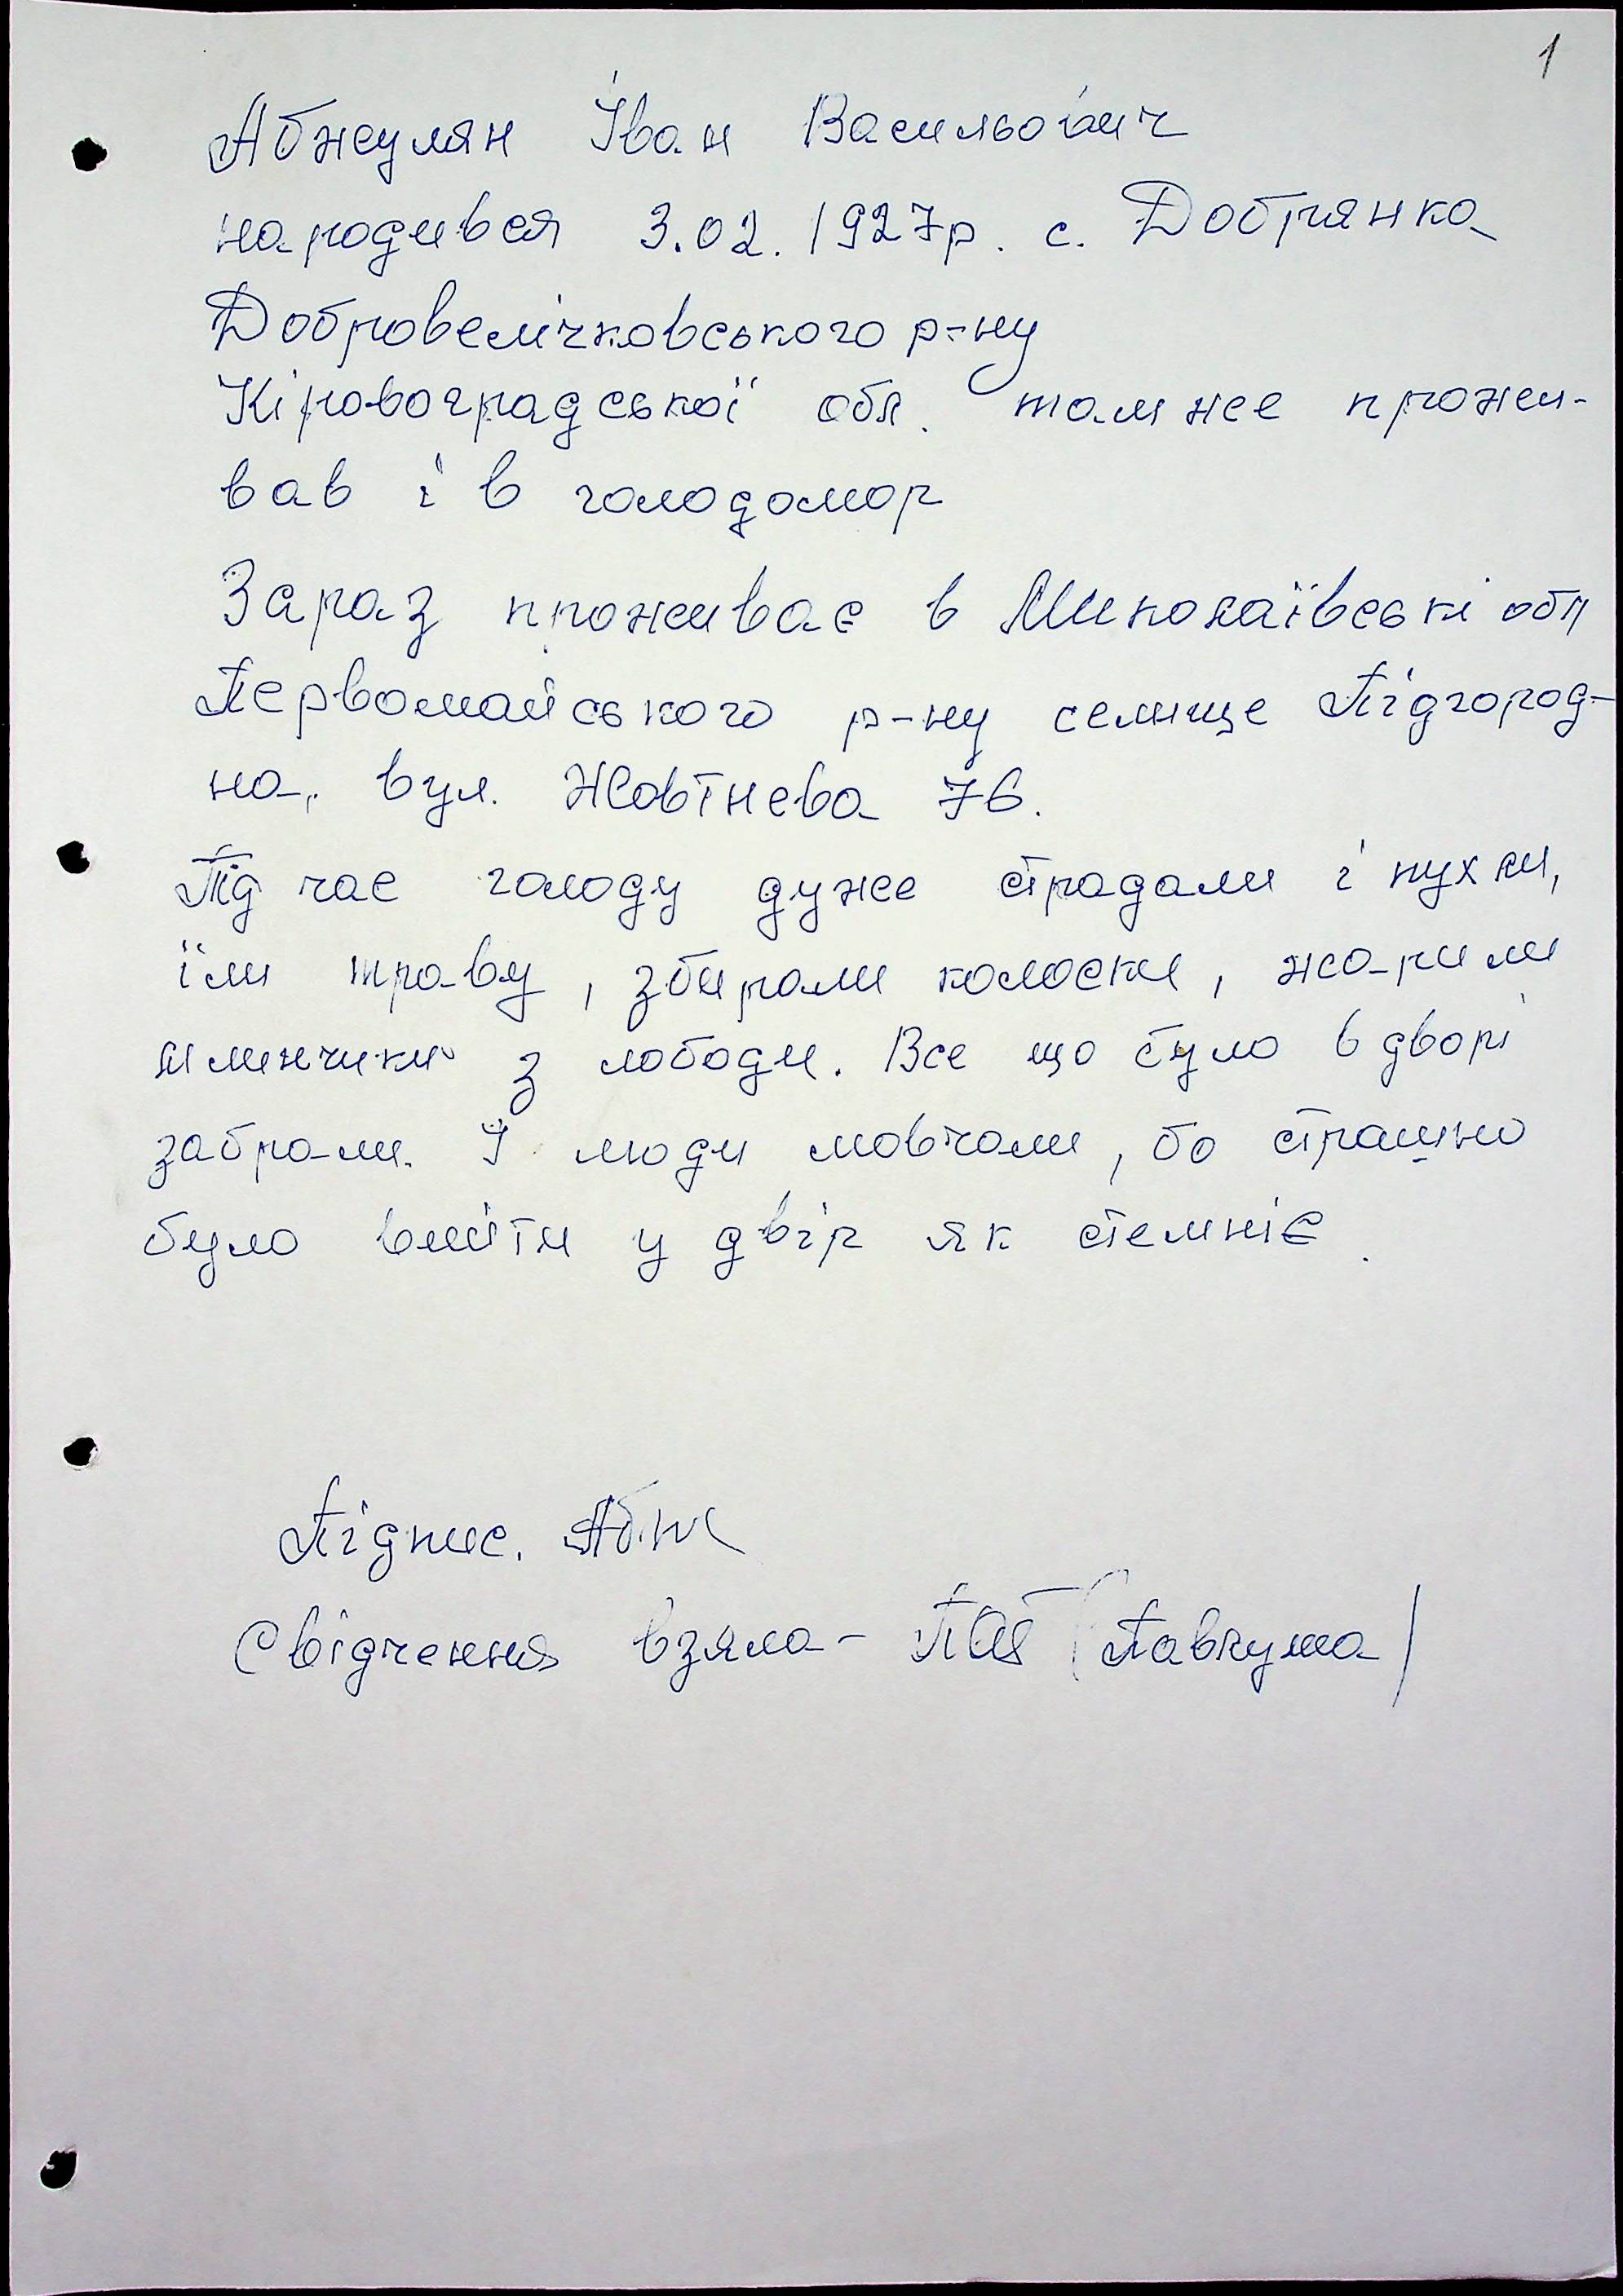 1
Абжулян Іван Васильович
народився 3.02.1927р. с. Добрянка
Добровелічковського р-ну
Кіровоградської обл. там же прожи-
вав і в голодомор
Зараз проживає в Миколаївські обл
Первомайського р-ну селище Підгород-
на, вул. Жовтнева 76.
Під час голоду дуже страдали і пухли,
їли траву, збирали колоски, жарили
млинчики з лободи. Все що було в дворі
забрали. І люди мовчали, бо страшно
було вийти у двір як стемніє.
Підпис.
Свідчення взяла - (Павлуша)